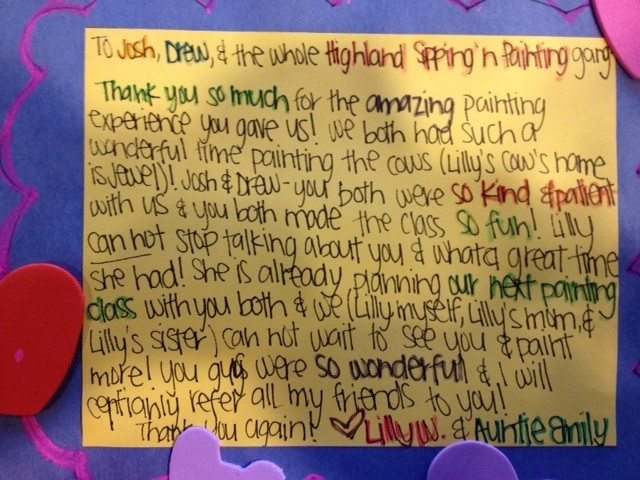 To Josh, Drew, & the whole Highland Sipping'n Painting gang
Thank you so much for the amazing painting
experience you gave us! We both had such a
wonderful time painting the cows (Lilly's cow's name
is Jewel)! Josh & Drew- you both were so kind & patient
with us & you both made the class so fun! Lilly
can not stop talking about you & what a great time
she had! She is already planning our next painting
class with you both & we (Lilly, myself, Lilly's mom, &
Lilly's sister) can not wait to see you & paint
more! You guys were so wonderful & I will
certianly refer all my friends to you!
Thank you again! ♡ Lilly W. & Auntie Emily